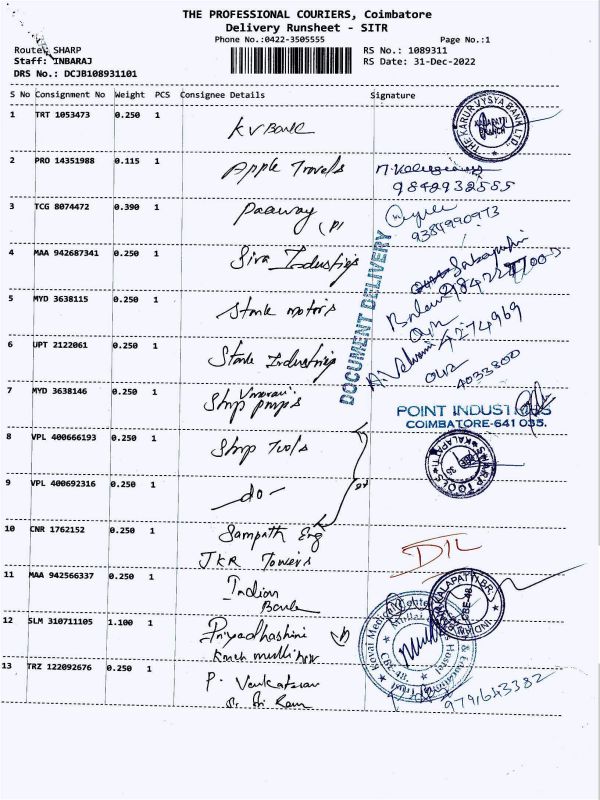 THE PROFESSIONAL COURIERS, Coimbatore
Delivery Runsheet - SITR
Phone No.:0422-3505555
Page No.:1
Route: SHARP
RS No.: 1089311
Staff: INBARAJ
RS Date: 31-Dec-2022
DRS No.: DCJB108931101
S No Consignment No Weight PCS Consignee Details Signature
1 TRT 1053473 0.250 1 KV Bank
THE KARUR VYSYA BANK LTD. KALAPATTI BRANCH
2 PRO 14351988 0.115 1 Apple Travels
9842932555
3 TCG 8074472 0.390 1
9384990973
4 MAA 942687341 0.250 1 Siva Industries
5 MYD 3638115 0.250 1 Stark motors
4274969
6 UPT 2122061 0.250 1 Stark Industries
4033800
DOCUMENT DELIVERY
7 MYD 3638146 0.250 1 Shrp pumps
POINT INDUSTRIES
COIMBATORE-641 035.
8 VPL 400666193 0.250 1 Shrp Tools
SHARP TOOLS KALAPATTI
9 VPL 400692316 0.250 1 - do -
10 CNR 1762152 0.250 1 Sampath Eng
JKR Towers
11 MAA 942566337 0.250 1 Indian
Bank
INDIAN KALAPATTI BR. CBE-48
12 SLM 310711105 1.100 1 Priyadhashini
Kovai Medical Center & Educational Trust Hostel CBE-48.
13 TRZ 122092676 0.250 1 P. Venkatesan
9791643382